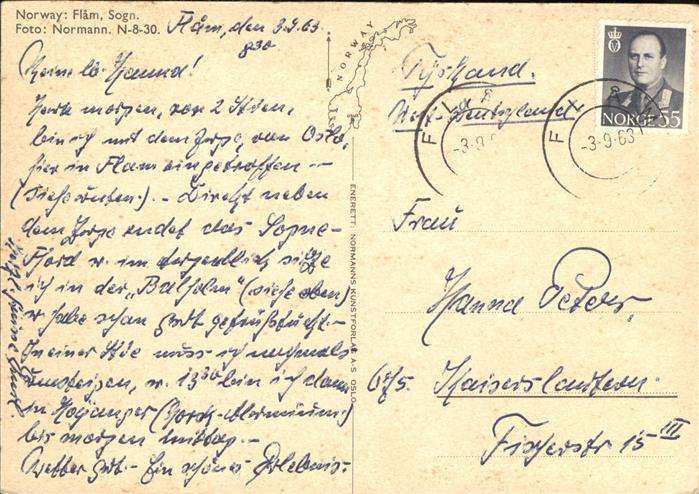 Norway: Flåm, Sogn.
Foto: Normann. N-8-30.
Flåm, den 3.9.63
8 30
Hanna!
morgen, vor 2 Stden,
bin ich mit dem Zuge, von Oslo,
hier in Flåm eingetroffen -
(siehe unten). - Direkt neben
dem Zuge endet das Sogne-
Fjord u. im Augenblick sitze
ich in der "Balholm" (siehe oben)
u. habe schon gut gefrühstückt. -
In einer Stde muss ich nochmals
umsteigen, u. 13 30 bin ich dann
in Høyanger (Aluminium)
bis morgen mittag. -
Wetter gut. - Ein schönes Erlebnis.
NORWAY
ENERETT: NORMANNS KUNSTFORLAG A-S OSLO
Tyskland.
West-Deutschland
FLÅM
-3-9-63
NORGE 55
Frau
Hanna Peters,
675. Kaiserslautern.
Fischerstr 15 III